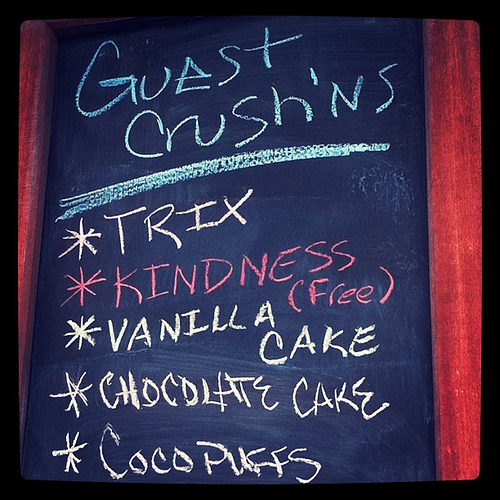 GUEST
CRUSH'NS
* TRIX
* KINDNESS
(Free)
* VANILLA
CAKE
* CHOCOLATE CAKE
* COCO PUFFS